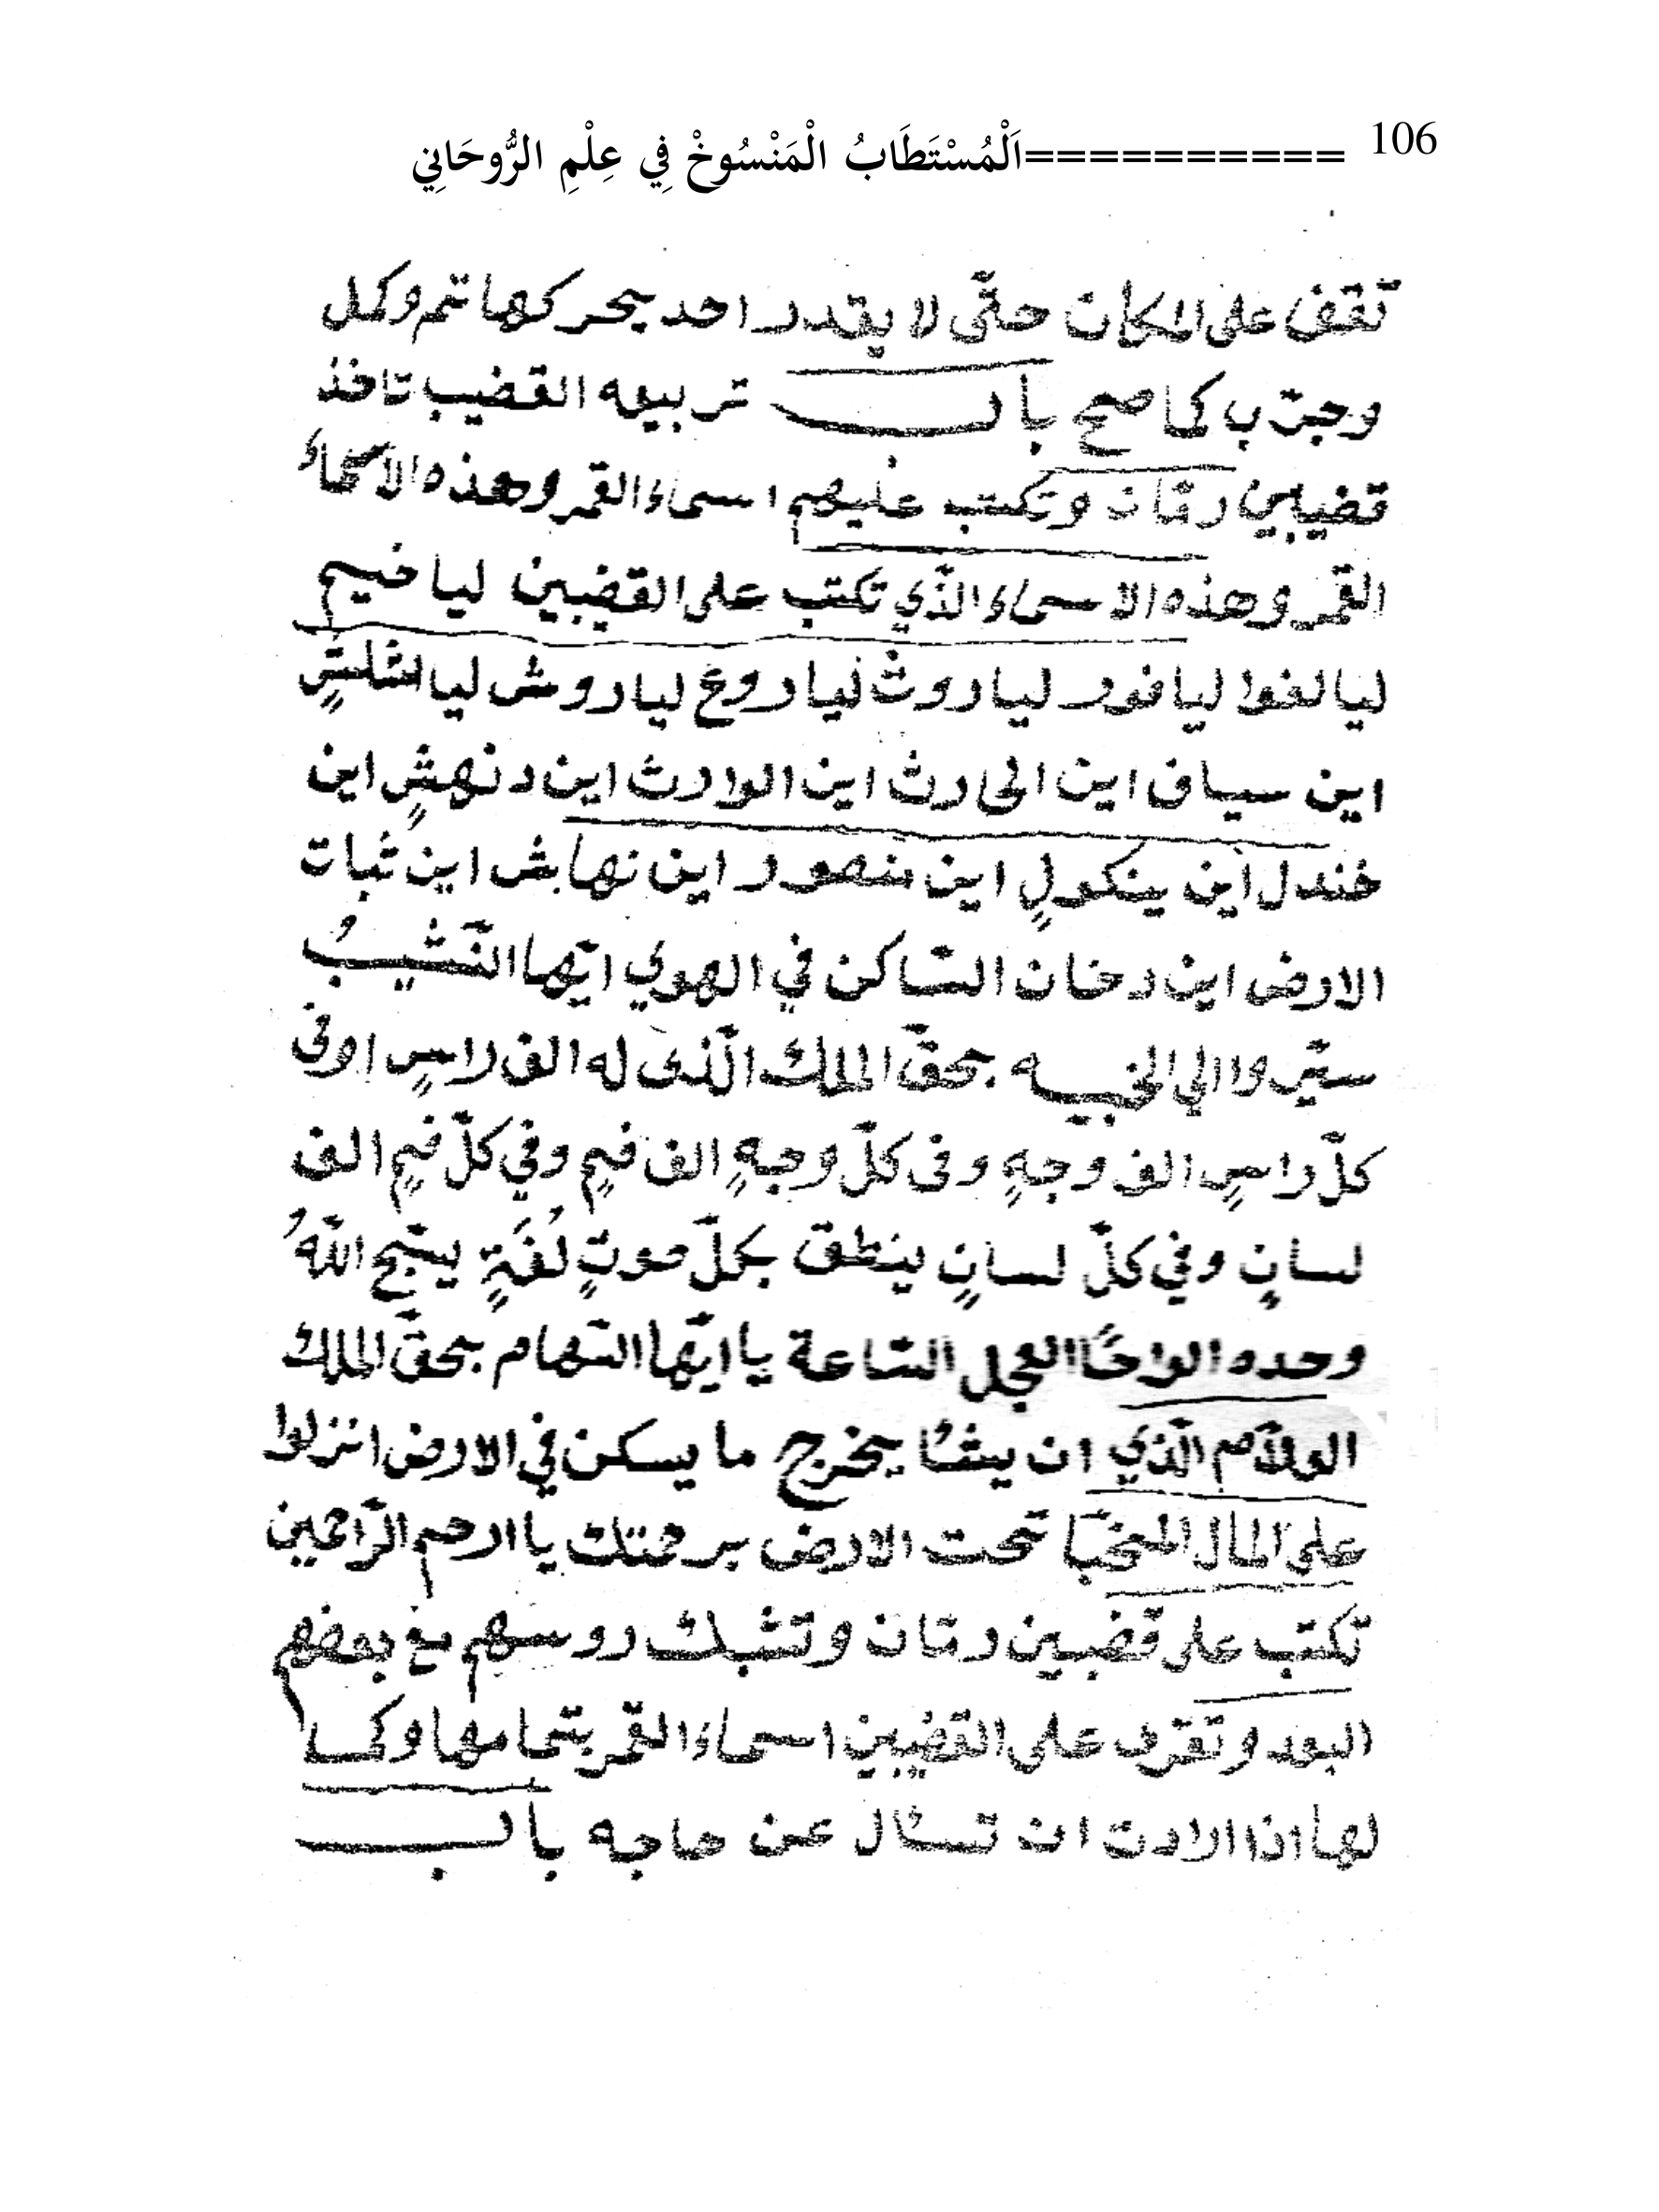 106 ==========اَلْمُسْتَطَابُ الْمَنْسُوخْ فِي عِلْمِ الرُّوحَانِي
تقف على المكان حتّى لا يقدر احد يحركها تم وكمل
وجرّب كما صح باب تربيعه القضيب تاخذ
قضيبين رمّان وتكتب عليهم اسماء القمر وهذه الاسماء
القمر وهذه الاسماء الذّي تكتب على القضيبين لياخيم
ليالغوا ليافور لياروث لياروغ لياروش ليا لشلشٍ
اين سياف اين الحارث اين الوارث اين دنهشٍ اين
خندل أين ينكولٍ اين منصور اين نهابش اين ثبات
الارض اين دخان السّاكن في الهوي ايّها النّشيبُ
سيّروا الي الخبيه بحقّ الملك الّذى له الف راسٍ اوفى
كلّ راسٍ الف وجهٍ وفى كلّ وجهٍ الف فيمٍ وفي كلّ فيمٍ الف
لسانٍ وفي كلّ لسانٍ ينطق بكلّ صوتٍ لُغَةٍ يسّبح اللّهُ
وحده الواحًا العجل السّاعة يا ايّها السّهام بحقّ الملك
الّذي ان يشا يخرج ما يسكن في الارض انزلوا
على المال المخبّا تحت الارض برحمتك يا ارحم الرّاحمين
تكتب على قضبين رمّان وتشبك روسهم مع بعضهم
البعد وتقرى على القضيبين اسماء القمر بتمامها وكما
لها اذا ارادت ان تسئال عن حاجه باب